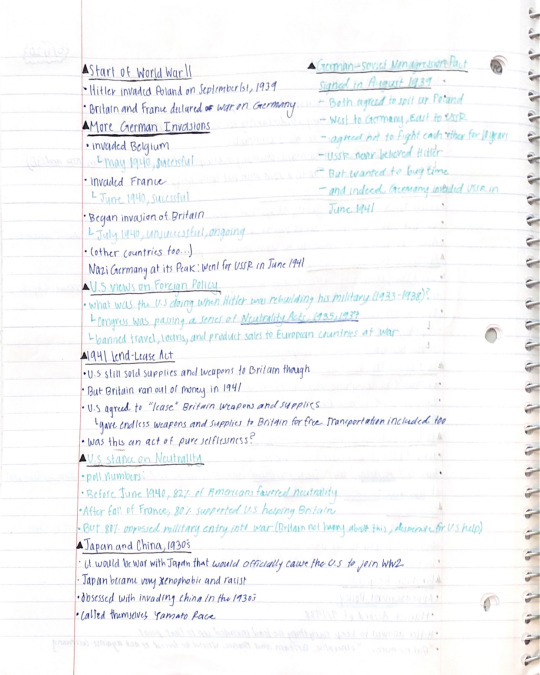 ▲Start of World War II
• Hitler invaded Poland on September 1st, 1939
• Britain and France declared war on Germany
▲More German Invasions
• invaded Belgium
└ May 1940, successful
• invaded France
└ June 1940, successful
• Began invasion of Britain
└ July 1940, unsuccessful, ongoing
• (other countries too...)
Nazi Germany at its Peak: went for USSR in June 1941
▲German-Soviet Nonaggression Pact
signed in August 1939
- Both agreed to split up Poland
- West to Germany, East to USSR
- agreed not to fight each other for 10 years
- USSR never believed Hitler
- But wanted to buy time
- and indeed Germany invaded USSR in
June 1941
▲U.S views on Foreign Policy
• what was the U.S doing when Hitler was rebuilding his military (1933-1938)?
└ Congress was passing a series of Neutrality Acts, 1935, 1937
└ banned travel, loans, and product sales to European countries at war
▲1941 Lend-Lease Act
• U.S still sold supplies and weapons to Britain though
• But Britain ran out of money in 1941
• U.S agreed to "lease" Britain weapons and supplies
└ gave endless weapons and supplies to Britain for free. Transportation included too
• was this an act of pure selflessness?
▲U.S stance on Neutrality
• poll numbers:
• Before June 1940, 82% of Americans favored neutrality
• After fall of France, 80% supported U.S helping Britain
• But 80% opposed military entry into war (Britain not happy about this, desperate for U.S help)
▲Japan and China, 1930s
• it would be war with Japan that would officially cause the U.S to join WW2
• Japan became very xenophobic and racist
• obsessed with invading China in the 1930s
• called themselves Yamato Race